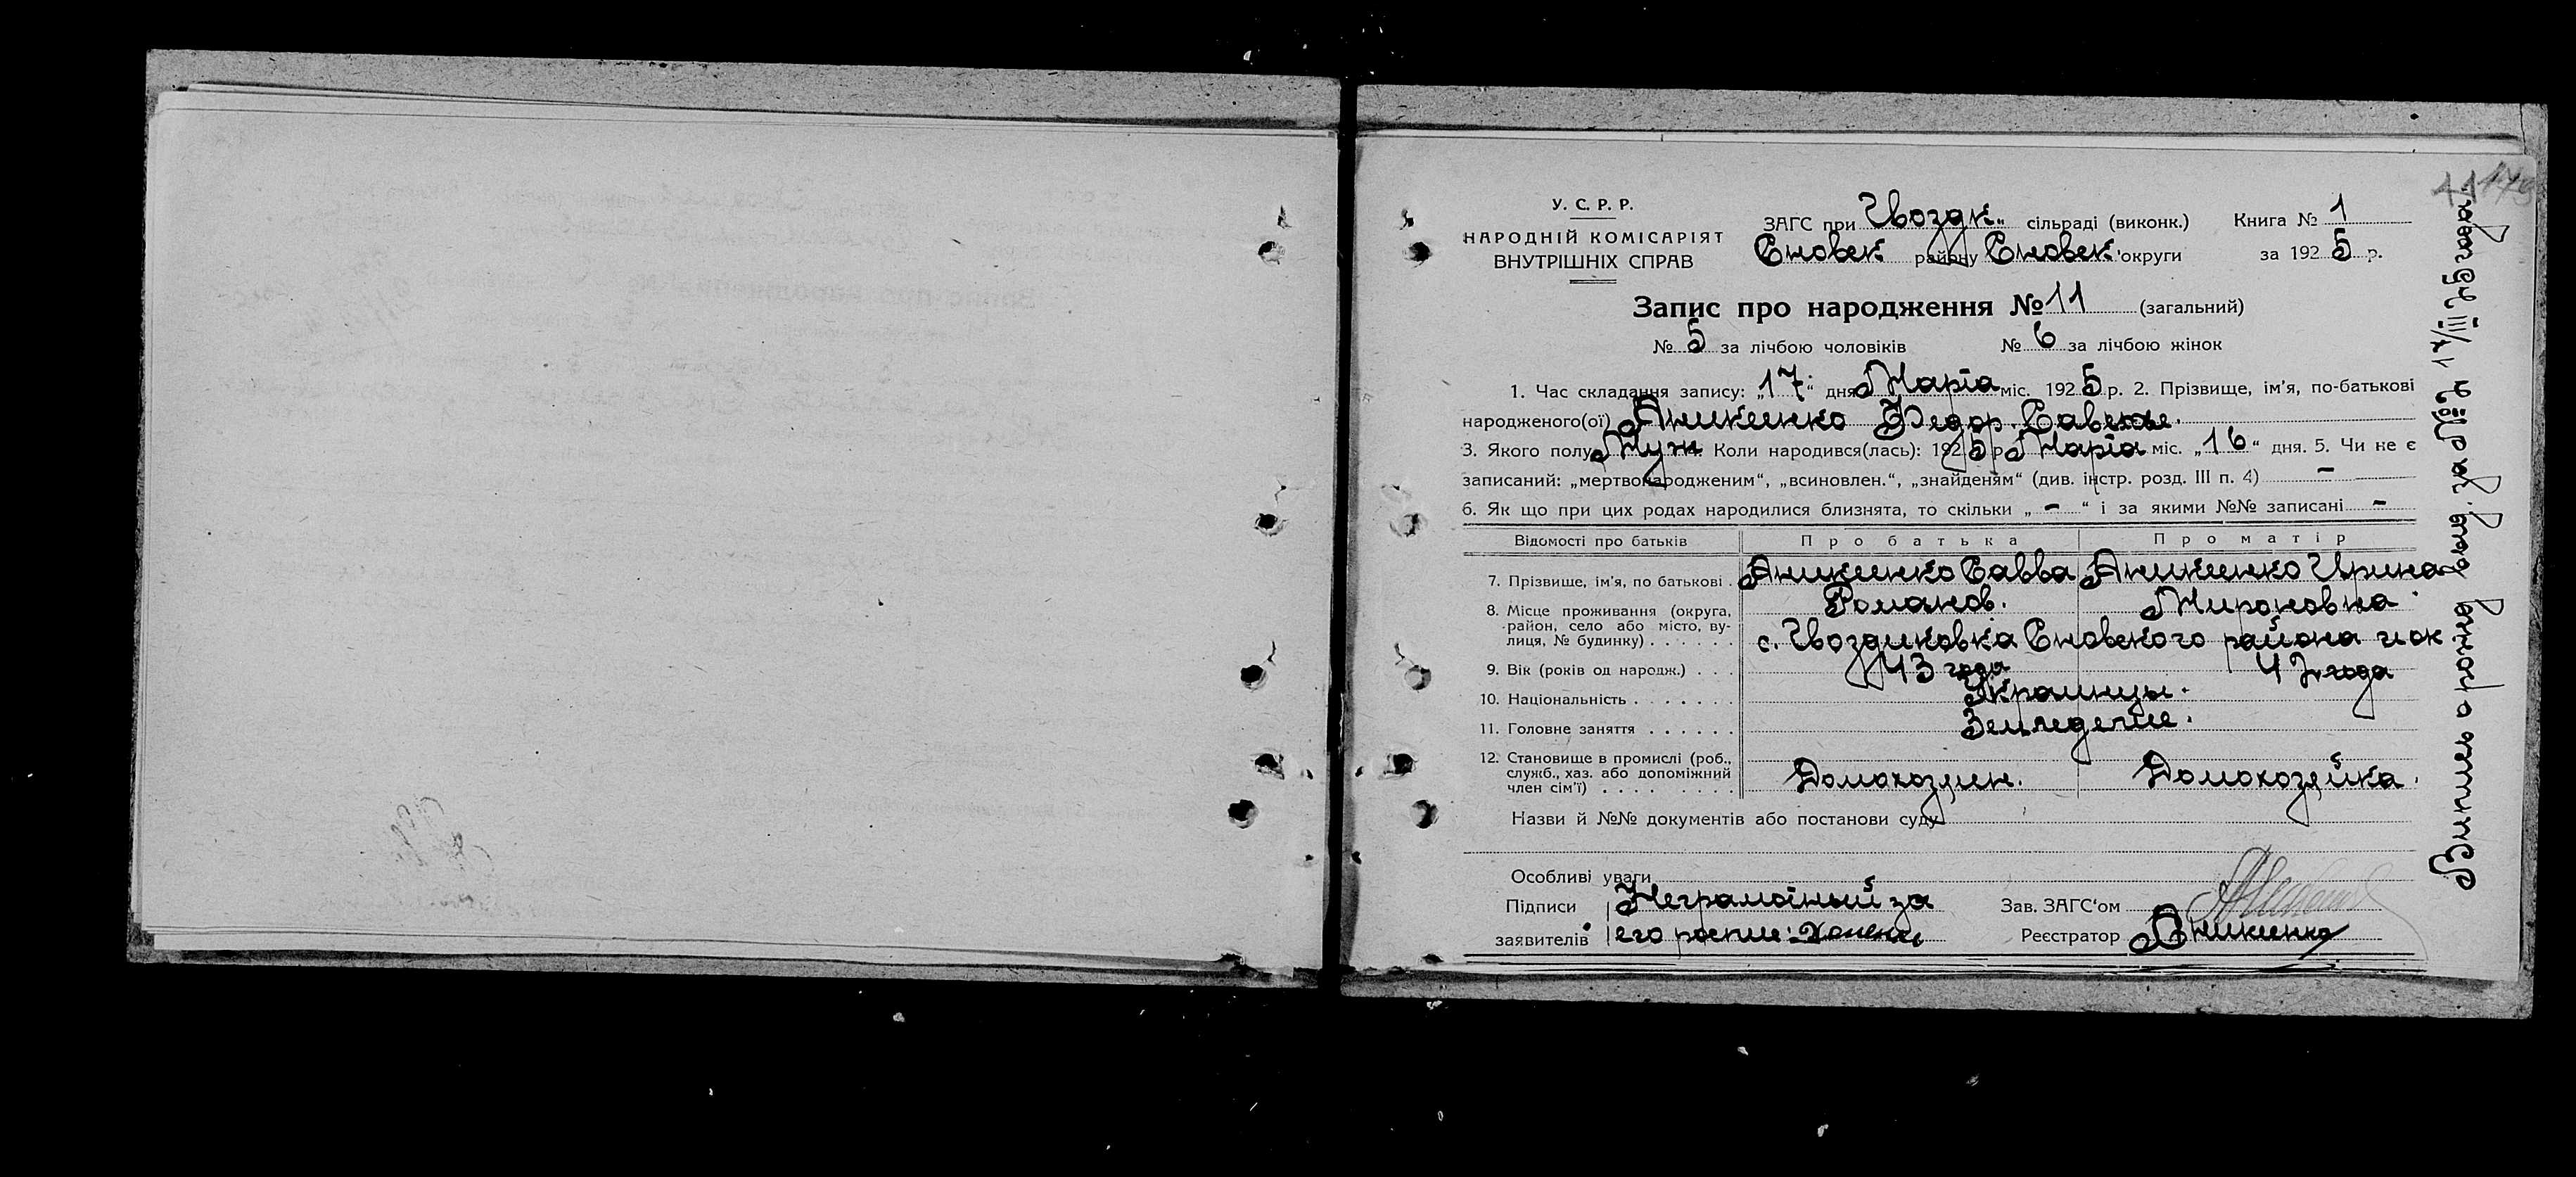 У. С. Р. Р.
НАРОДНІЙ КОМІСАРІЯТ
ВНУТРІШНІХ СПРАВ
ЗАГС при Гвоздик. сільраді (виконк.) Книга № 1
Сновск району Сновск. округи за 1925 р.
Запис про народження № 11 (загальний)
№ 5 за лічбою чоловіків № 6 за лічбою жінок
1. Час складання запису: „17“ дня Марта міс. 1925 р. 2. Прізвище, ім'я, по-батькові
народженого(ої) Аникиенко Федор
3. Якого полу Муж 4. Коли народився(лась): 1925 р. Марта міс. „16“ дня. 5. Чи не є
записаний: „мертвонародженим“, „всиновлен.“, „знайденям“ (див. інстр. розд. III п. 4) —
6. Як що при цих родах народилися близнята, то скільки „ — “ і за якими №№ записані —
Відомості про батьків Про батька Про матір
7. Прізвище, ім'я, по батькові . Аникиенко Савва Аникиенко Ирина
Романов. Мироновна
8. Місце проживання (округа,
район, село або місто, ву-
лиця, № будинку) . . . . . . с. Гвоздиковка Сновского района и ок
9. Вік (років од народж.) . . . 43 года 42 года
10. Національність . . . . . . . Украинцы.
11. Головне заняття . . . . . . Земледелие.
12. Становище в промислі (роб.,
служб., хаз. або допоміжний
член сім'ї) . . . . . . . . Домохозяин. Домохозяйка.
Назви й №№ документів або постанови суду
Особливі уваги
Підписи Неграмотный за Зав. ЗАГС'ом
заявителів его роспис: Реєстратор Аникиенко
Выпись о рожд. выд. за № 2 17/III 25 года